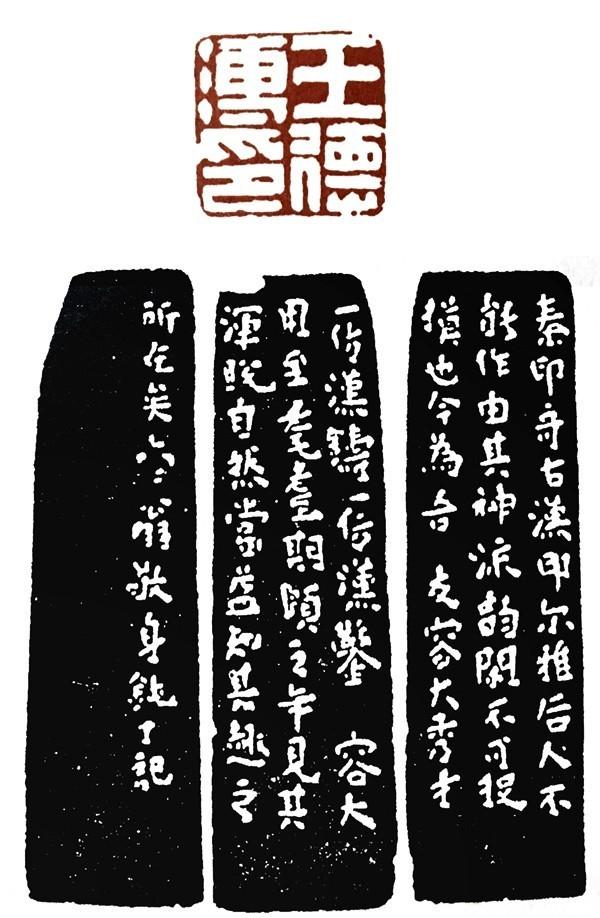 王德
溥印
秦印奇古漢印尔雅后人不
能作由其神流韵閑不可捉
摸也今為吾 友容大秀才
一仿漢鑄一仿漢鑿 容大
用至耄耋期頤之年見其
渾脫自然當益知其趣之
所在矣六二翁敬身鈍丁記